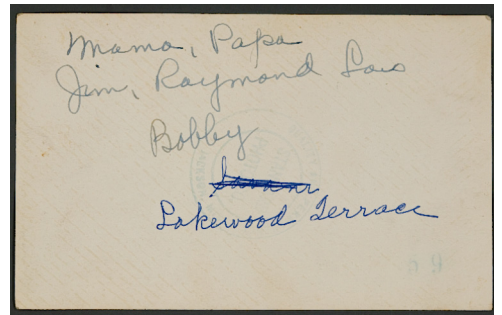 Mama, Papa
Jim, Raymond Lou
Bobby
Lakewood Terrace